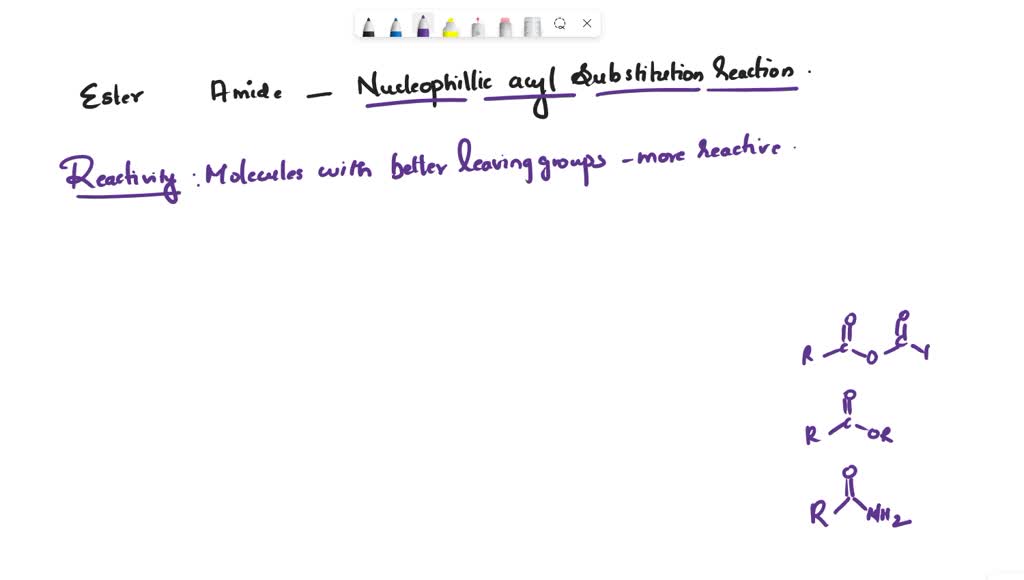 Ester Amide — Nucleophillic acyl Substitution Reaction.
Reactivity : Molecules with better leaving groups - more reactive.
O O
R C O C
O
R C OR
O
R NH2